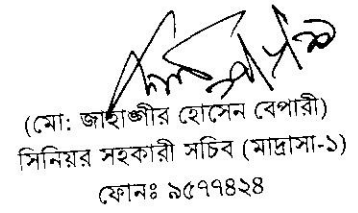 (মো: জাহাঙ্গীর হোসেন বেপারী)
সিনিয়র সহকারী সচিব (মাদ্রাসা-১)
ফোনঃ ৯৫৭৭৪২৪